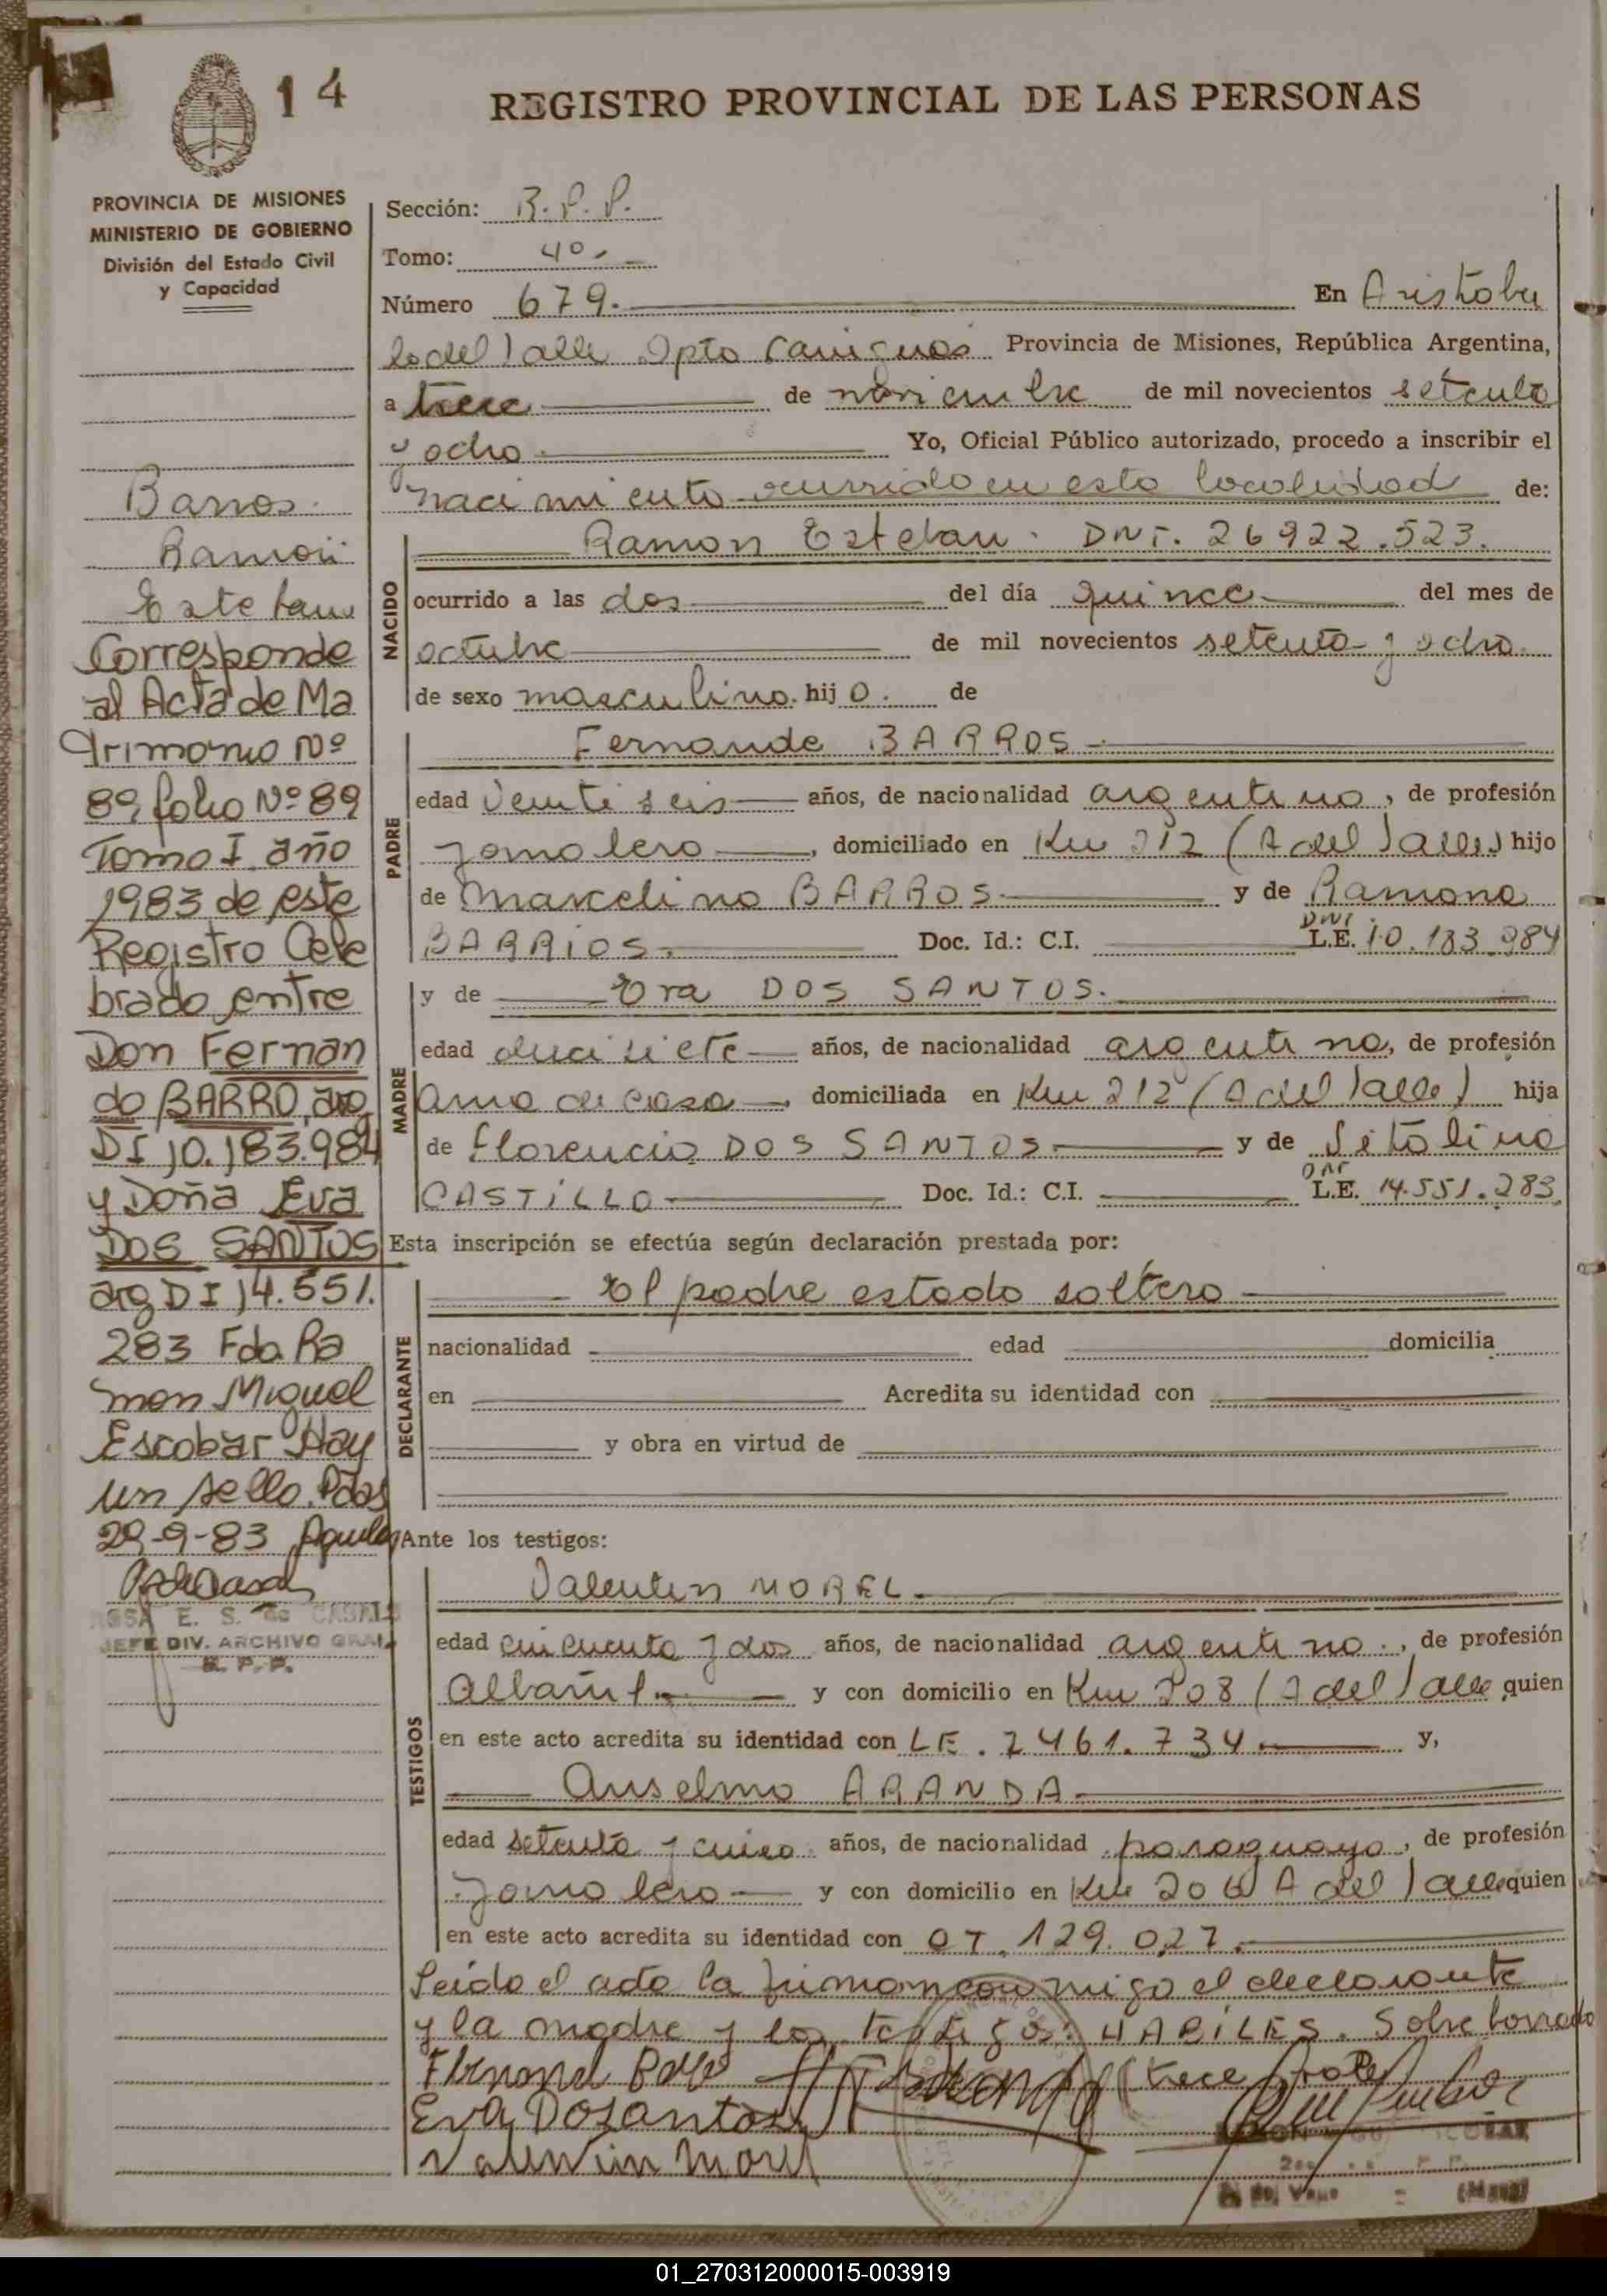 14
REGISTRO PROVINCIAL DE LAS PERSONAS
PROVINCIA DE MISIONES
MINISTERIO DE GOBIERNO
División del Estado Civil
y Capacidad
Barros
Ramón
Esteban
Corresponde
al Acta de Ma
trimonio Nº
89 folio Nº 89
Tomo I año
1983 de este
Registro Cele
brado entre
Don Fernan
do BARRO, arg
DI 10.183.984
y Doña Eva
DOS SANTOS
arg DI 14.551.
283 Fdo Ra
mon Miguel
Escobar Hay
un sello. Pdas
29-9-83
E. S. de CASALS
JEFE DIV. ARCHIVO GRAL.
R. P. P.
Sección: R.P.P.
Tomo: 4º
Número 679. En Aristobu
lo del Valle Dpto Cainguás Provincia de Misiones, República Argentina,
a trece de noviembre de mil novecientos setenta
y ocho Yo, Oficial Público autorizado, procedo a inscribir el
nacimiento ocurrido en esta localidad de:
NACIDO
Ramon Esteban. DNI. 26922.523.
ocurrido a las dos del día quince del mes de
octubre de mil novecientos setenta y ocho
de sexo masculino. hij o. de
PADRE
Fernando BARROS
edad veinti seis años, de nacionalidad argentino, de profesión
Jornalero, domiciliado en Km 212 (A del Valle) hijo
de Marcelino BARROS y de Ramona
BARRIOS. Doc. Id.: C.I. DNI. L.E. 10.183.984
MADRE
y de Eva DOS SANTOS.
edad diecisiete años, de nacionalidad argentina, de profesión
Ama de casa, domiciliada en Km 212 (A del Valle) hija
de Florencio DOS SANTOS y de Vitalina
CASTILLO Doc. Id.: C.I. DNI L.E. 14.551.283.
Esta inscripción se efectúa según declaración prestada por:
DECLARANTE
El padre estado soltero
nacionalidad edad domicilia
en Acredita su identidad con
y obra en virtud de
Ante los testigos:
TESTIGOS
Valentin MOREL.
edad cincuenta y dos años, de nacionalidad argentino., de profesión
Albañil y con domicilio en Km 208 (A del Valle quien
en este acto acredita su identidad con LE. 2461.734 y,
Anselmo ARANDA
edad setenta y cinco años, de nacionalidad paraguayo, de profesión
Jornalero y con domicilio en Km 206 A del Valle quien
en este acto acredita su identidad con 129.027.
Leído el acta la firman conmigo el declarante
y la madre y los testigos: HABILES. Sobre borrado
(trece
Eva Dosantos
Valentin Morel
01_270312000015-003919